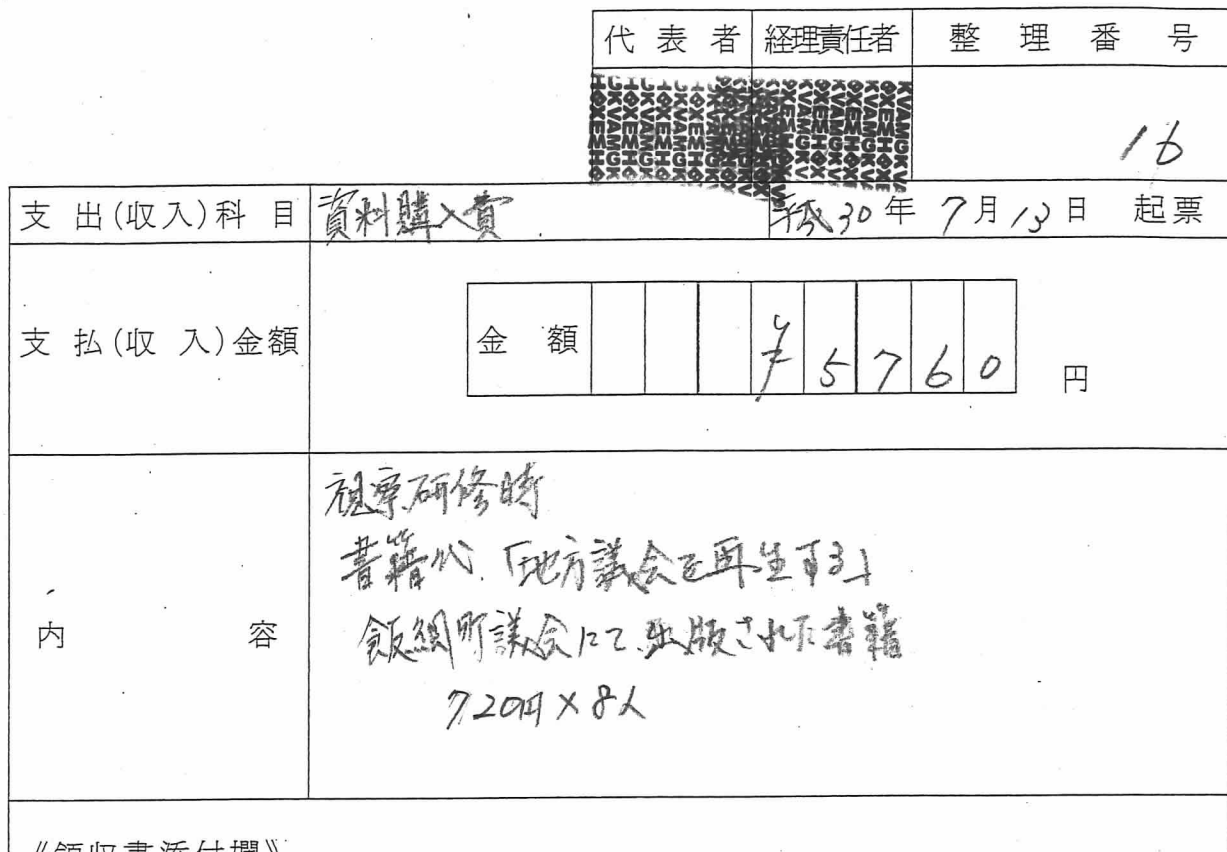 代表者 経理責任者 整理番号
16
支出(収入)科目 資料購入費 平成30年7月13日 起票
支払(収入)金額 金額 ¥5760円
内容
視察研修時
書籍代.「地方議会を再生する」
飯綱町議会にて、出版された書籍
720円×8人
《領収書添付欄》